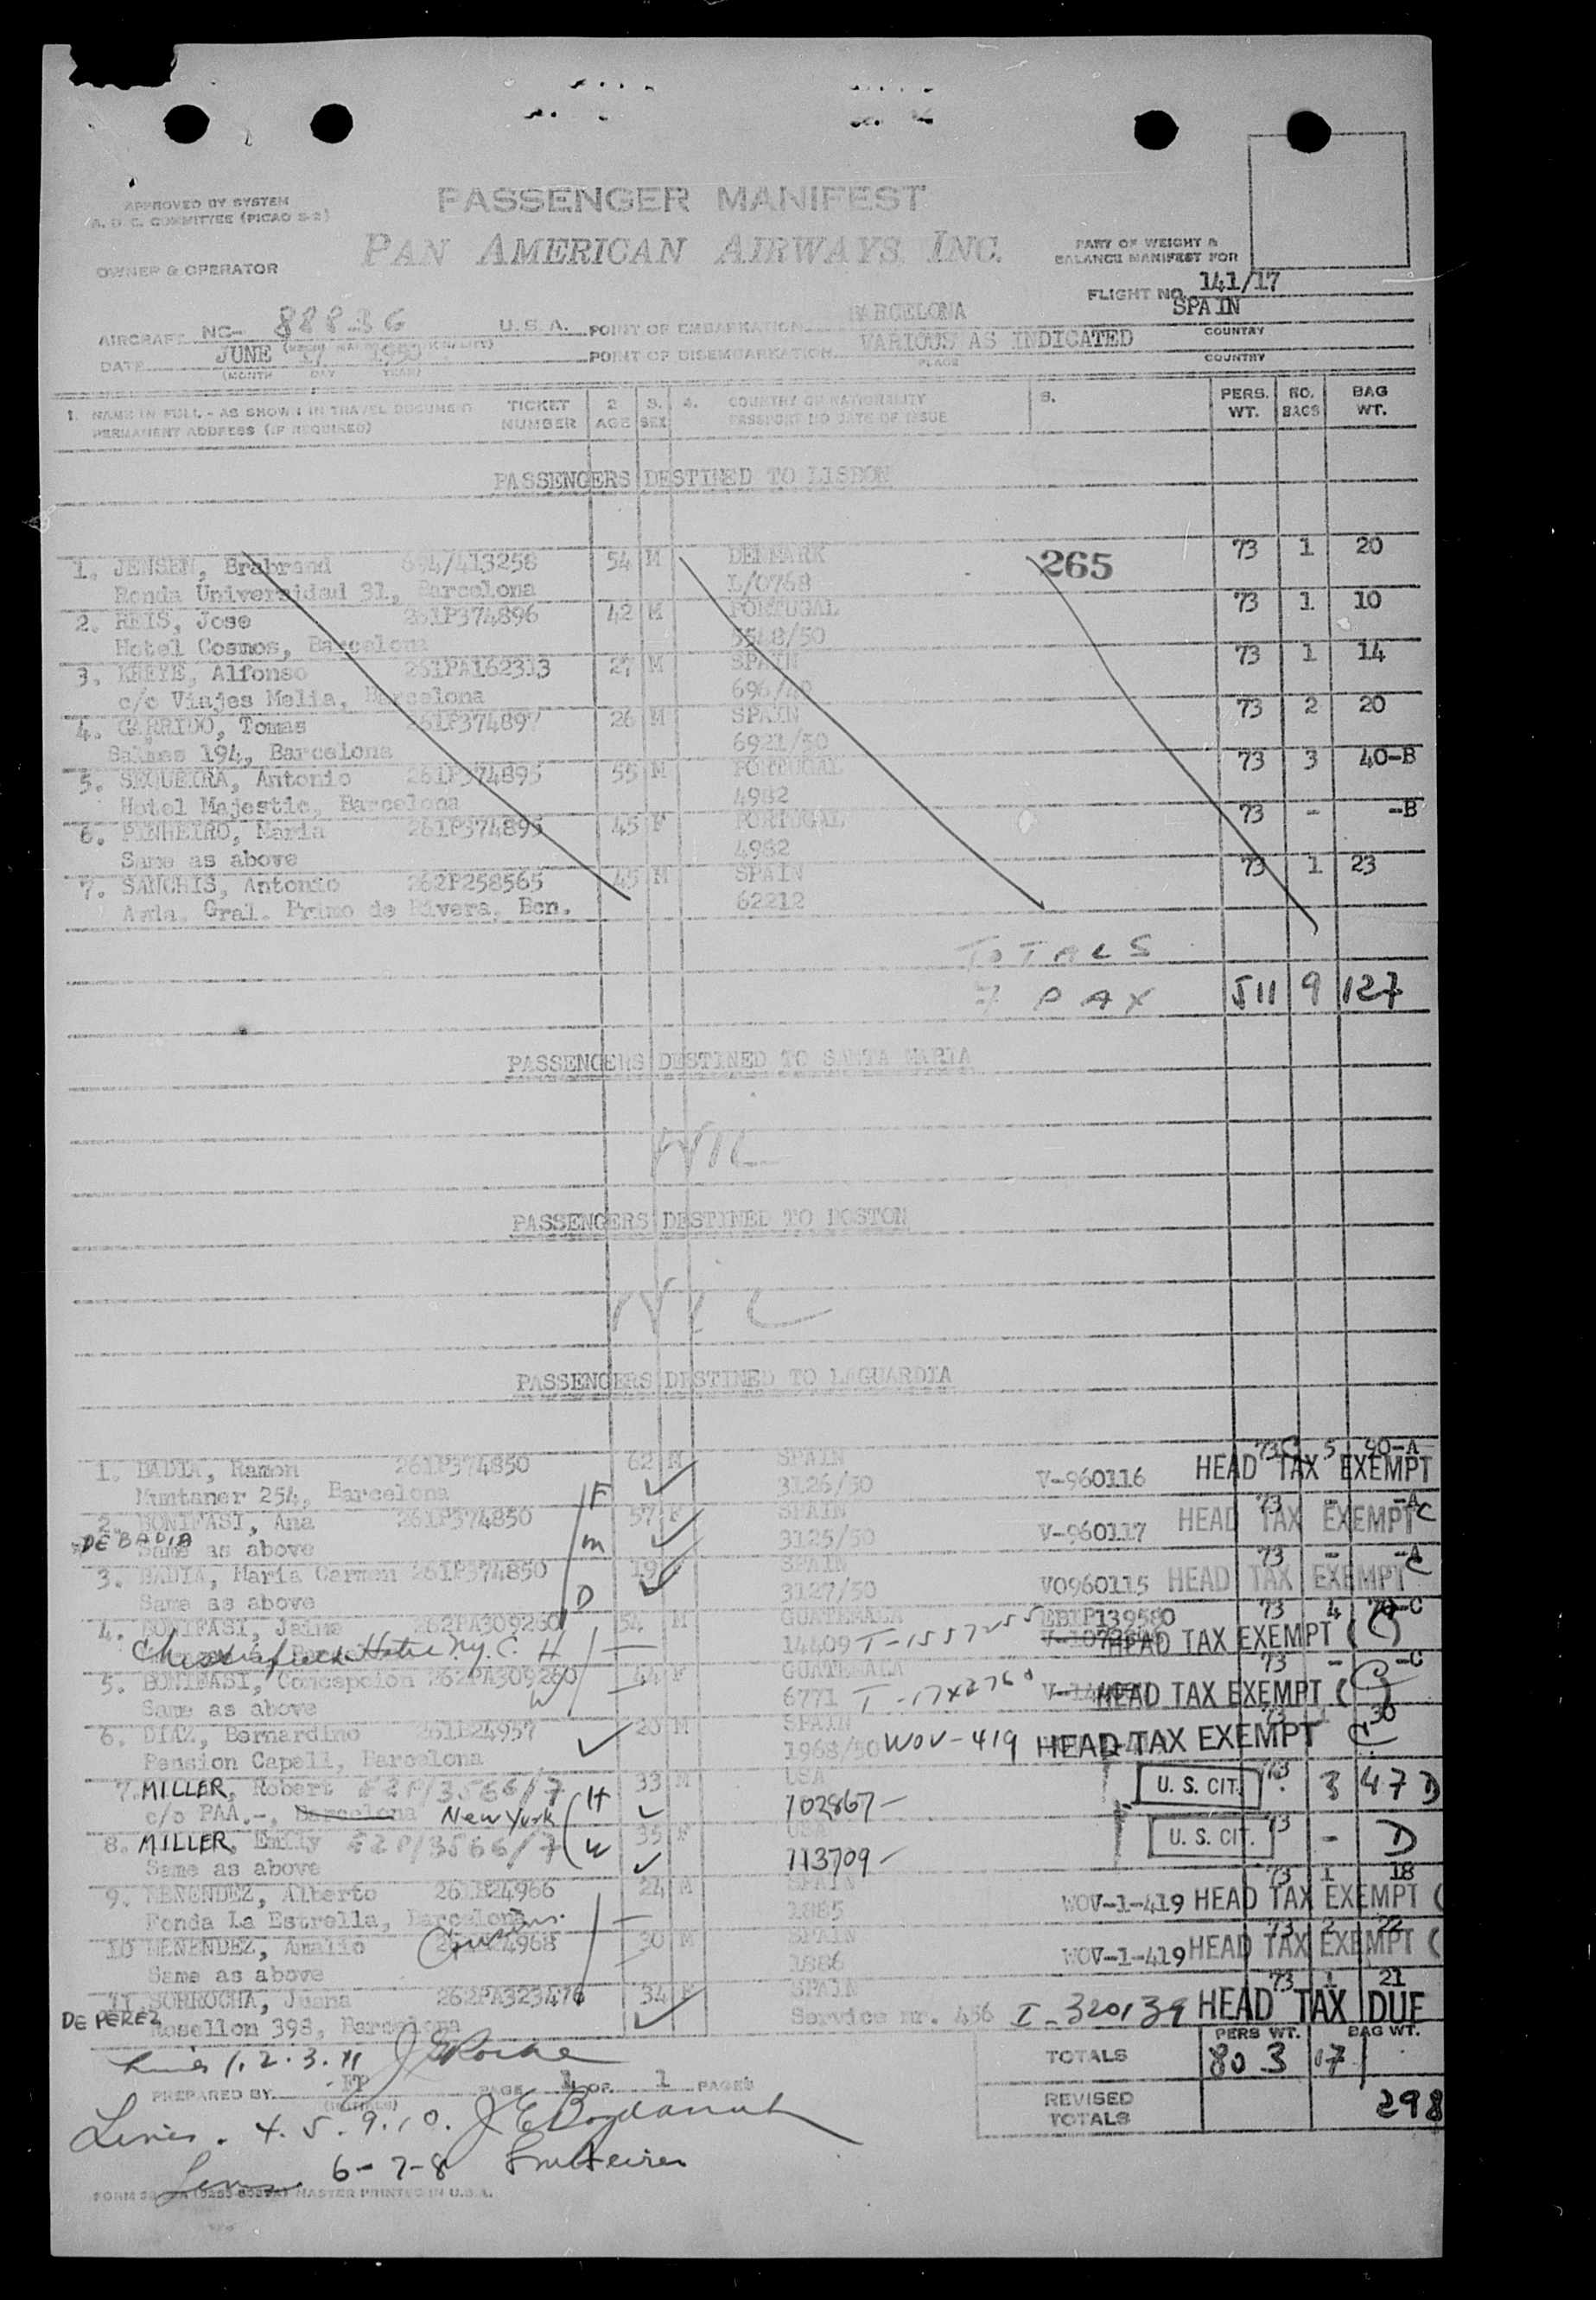 APPROVED BY SYSTEM
A. O. C. COMMITTEE (PICAO S-2)
PASSENGER MANIFEST
PAN AMERICAN AIRWAYS INC.
OWNER & OPERATOR
PART OF WEIGHT &
BALANCE MANIFEST FOR
FLIGHT NO. 141/17
AIRCRAFT NC- 88836 U.S.A. POINT OF EMBARKATION BARCELONA SPAIN
COUNTRY
DATE JUNE 17 1950 POINT OF DISEMBARKATION VARIOUS AS INDICATED
(MONTH DAY YEAR) PLACE COUNTRY
1. NAME IN FULL - AS SHOWN IN TRAVEL DOCUMENT TICKET 2 3. 4. COUNTRY OF NATIONALITY 5. PERS. NO. BAG
PERMANENT ADDRESS (IF REQUIRED) NUMBER AGE SEX PASSPORT NO DATE OF ISSUE WT. BAGS WT.
PASSENGERS DESTINED TO LISBON
1. JENSEN, Brabrand /413258 54 M DENMARK 265 73 1 20
Ronda Universidad 31, Barcelona L/0768
2. REIS, Jose 261P374896 42 M PORTUGAL 73 1 10
Hotel Cosmos, Barcelona /50
3. Alfonso 261PA162313 27 M SPAIN 73 1 14
c/o Viajes Melia, Barcelona
4. GARRIDO, Tomas 261P374897 26 M SPAIN 73 2 20
194, Barcelona 6921/50
5. SEQUEIRA, Antonio 261P374895 55 M PORTUGAL 73 3 40-B
Hotel Majestic, Barcelona 4982
6. PINHEIRO, Maria 261P374895 45 F PORTUGAL 73 - --B
Same as above 4982
7. SANCHIS, Antonio 262P258565 45 M SPAIN 73 1 23
Avda. Gral. Primo de Rivera, Bcn. 62212
TOTALS
7 PAX 511 9 127
PASSENGERS DESTINED TO SANTA MARIA
NIL
PASSENGERS DESTINED TO BOSTON
NIL
PASSENGERS DESTINED TO LAGUARDIA
1. BADIA, Ramon 261P374850 62 M SPAIN 73 5 -A
Muntaner 254, Barcelona F 3126/50 V-960116 HEAD TAX EXEMPT
2. BONIFASI, Ana 261P374850 57 F SPAIN 73 - -A
DE BADIA Same as above m 3125/50 V-960117 HEAD TAX EXEMPT C
3. BADIA, Maria Carmen 261P374850 19 F SPAIN 73 - -A
Same as above D 3127/50 V0960115 HEAD TAX EXEMPT C
4. BONIFASI, Jaime 262PA309260 54 M GUATEMALA EBIP139580 73 4 -C
Hotel N.Y.C. H 14409 HEAD TAX EXEMPT (C)
5. BONIFASI, Concepcion 262PA309260 44 F GUATEMALA 73 - -C
Same as above W 6771 HEAD TAX EXEMPT (C)
6. DIAZ, Bernardino 261B24957 M SPAIN 73 30
Pension Capell, Barcelona 1968/50 WOV-419 HEAD TAX EXEMPT C
7. MILLER, Robert 33 M USA U. S. CIT. 73 3 47 D
c/o PAA.-, Barcelona New York H 102867-
8. MILLER, Emily 35 F USA U. S. CIT. 73 - D
Same as above W 113709-
9. MENENDEZ, Alberto 261B24966 24 M SPAIN 73 1 18
Fonda La Estrella, Barcelona 1885 WOV-1-419 HEAD TAX EXEMPT (
10 MENENDEZ, Amalio Cousins. 30 M SPAIN 73 2 22
Same as above 1886 WOV-1-419 HEAD TAX EXEMPT (
11. SORROCHA, Juana 262PA323476 34 F SPAIN 73 1 21
DE PEREZ Rosellon 398, Barcelona Service nr. 456 I-320139 HEAD TAX DUE
PERS WT. BAG WT.
Lines 1.2.3.11 TOTALS 803 17
PREPARED BY FP PAGE 1 OF 1 PAGES
REVISED TOTALS 298
Lines. 4.5.9.10.
Lines 6-7-8
MASTER PRINTED IN U.S.A.